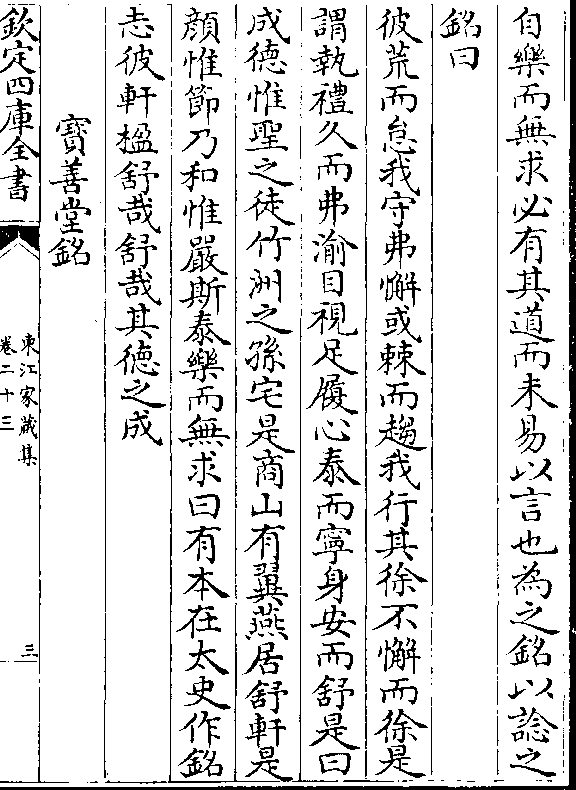 自樂而無求必有其道而未易以言也為之銘以諗之
銘曰
彼荒而怠我守弗懈或棘而趨我行其徐不懈而徐是
謂執禮久而弗渝目視足履心泰而寧身安而舒是曰
成德惟聖之徒竹洲之孫宅是商山有翼燕居舒軒是
顔惟節乃和惟嚴斯泰樂而無求曰有本在太史作銘
志彼軒楹舒哉舒哉其德之成
寶善堂銘
欽定四庫全書
東江家藏集
卷二十三
三